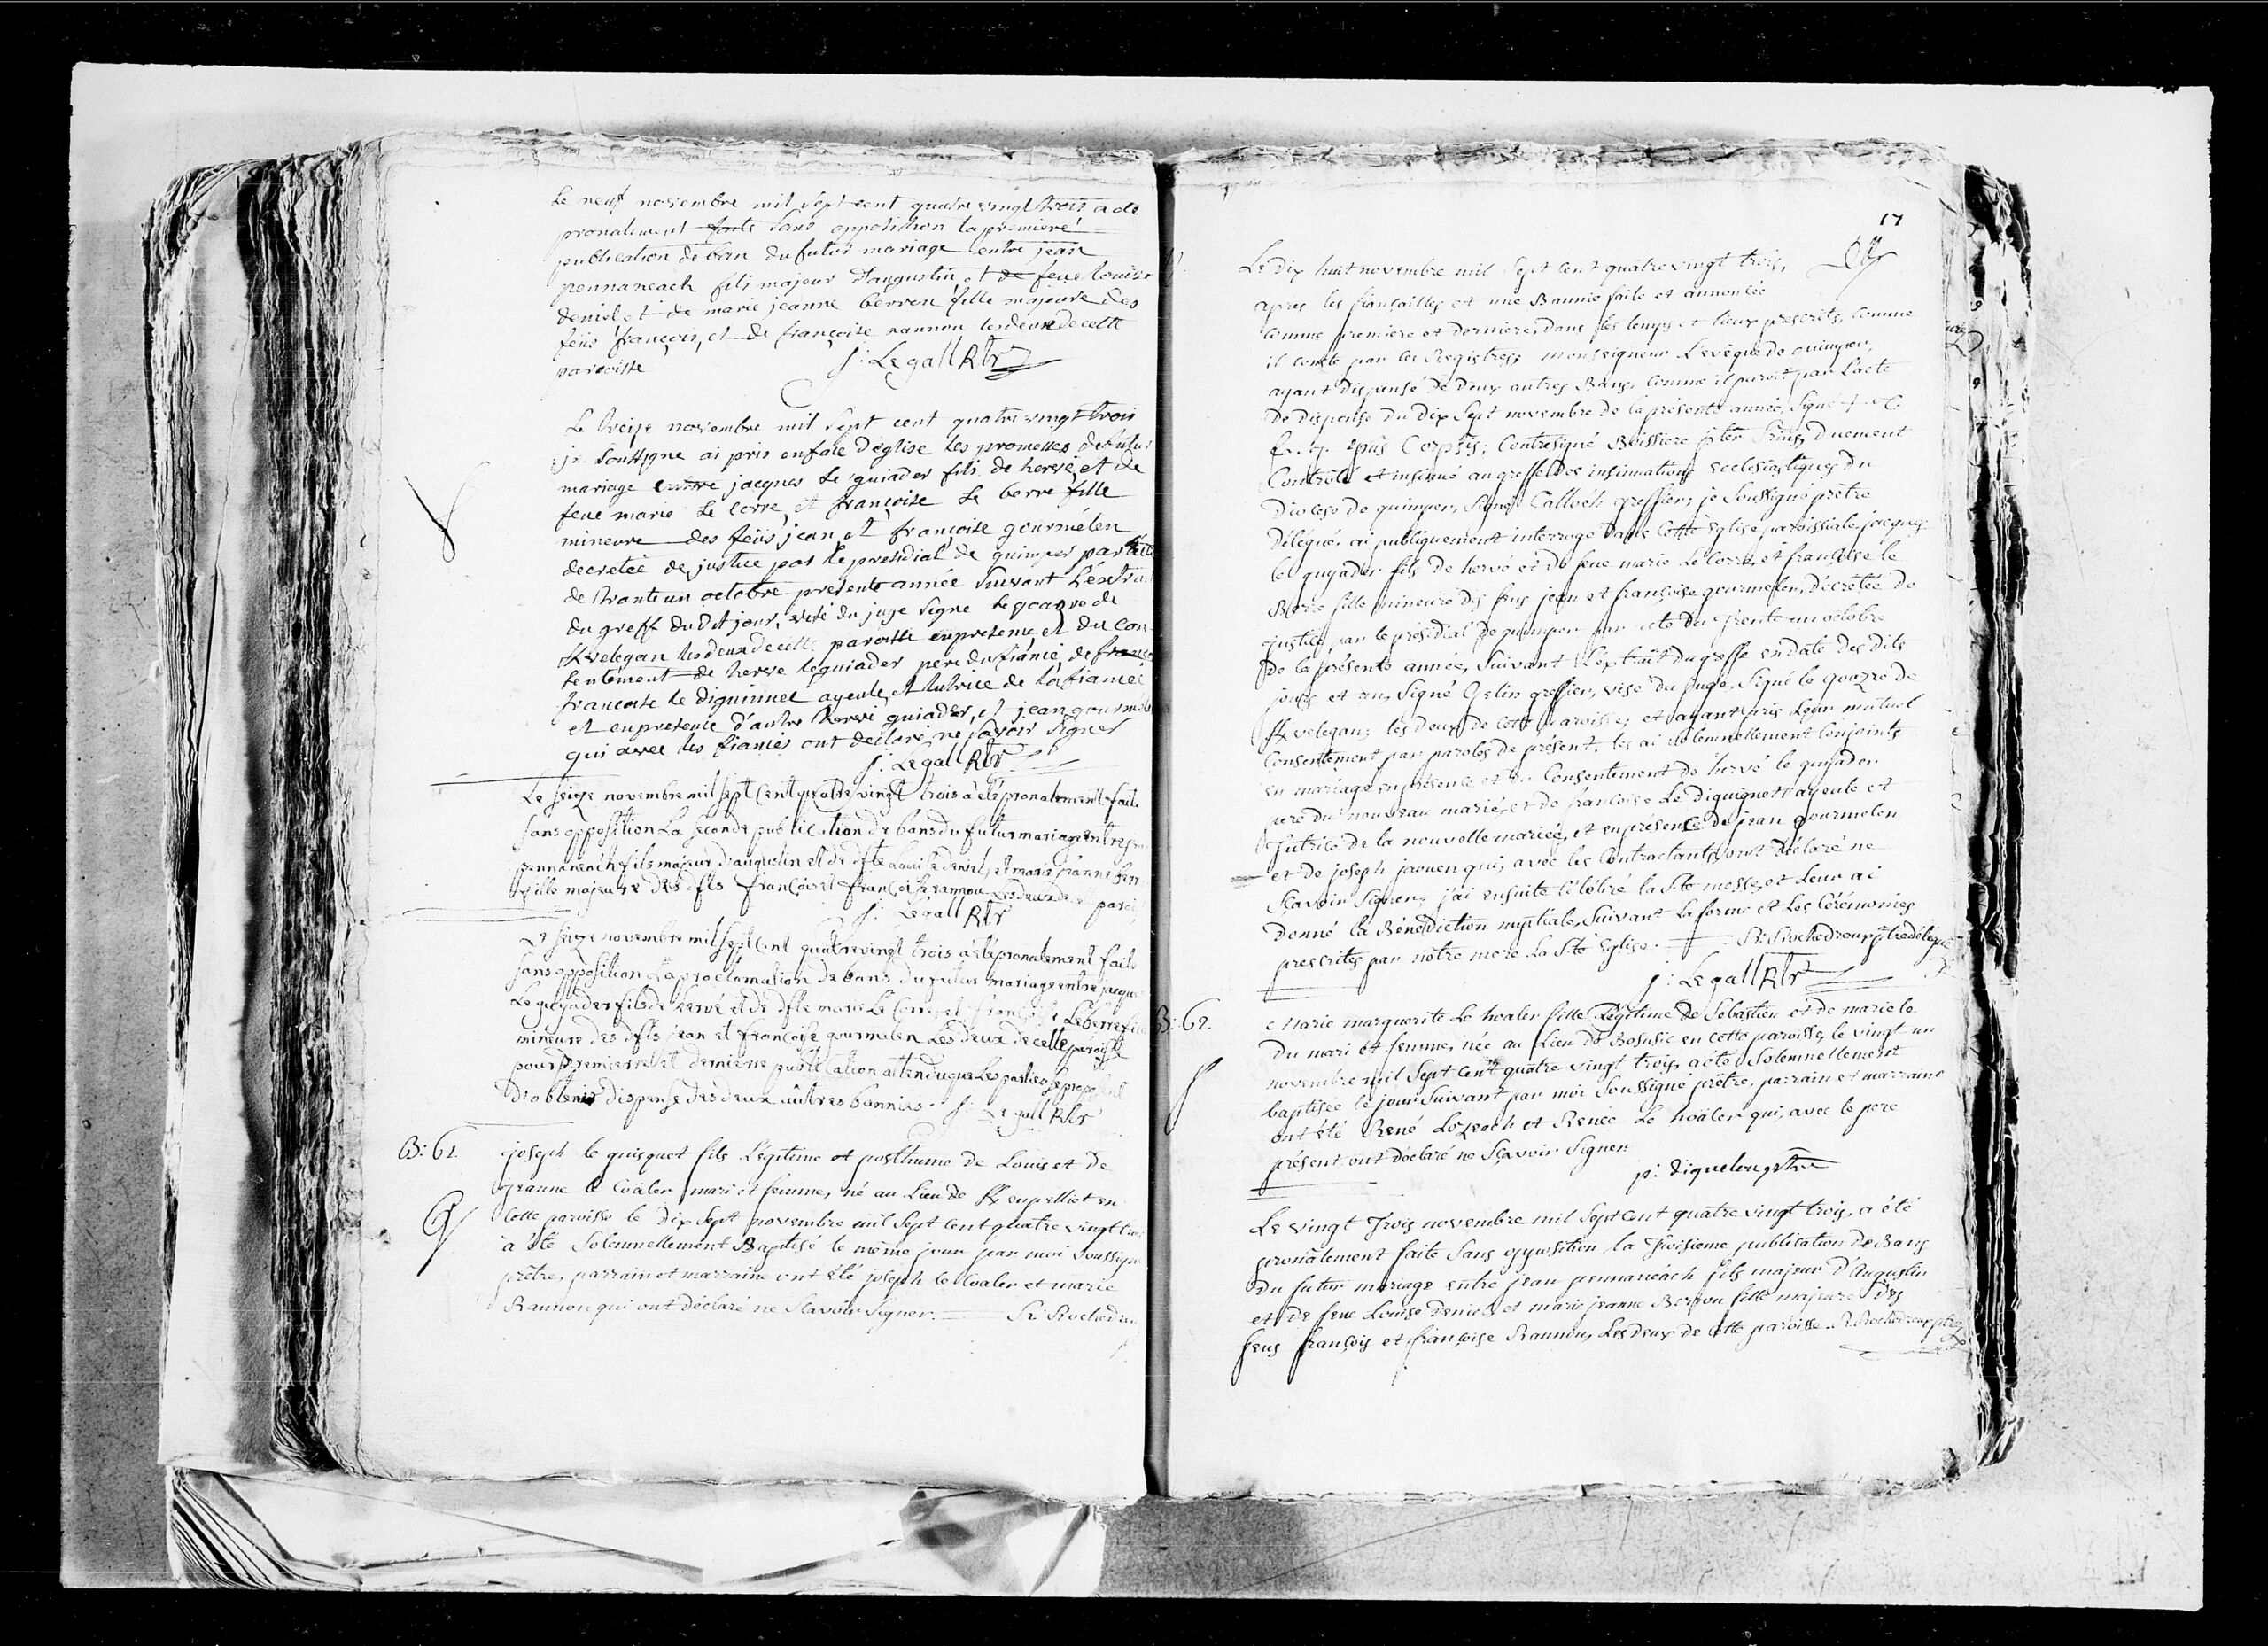 Le neuf novembre mil sept cent quatre vingt trois a ete
pronalement faite sans opposition la premiere
publication de ban du futur mariage entre jean
pennaneach fils majeur d'augustin, et de feue louise
deniel et de marie jeanne berron fille majeure des
feüs françois, et de françoise rannou les deux de cette
paroisse
j: Le gall Rtr
Le treize novembre mil sept cent quatre vingt trois
je soussigne ai pris en face d'eglise les promesses de futur
mariage entre jacques le guiader fils de hervé, et de
feue marie le corre, et françoise le berre fille
mineure des feüs jean et françoise gourmélen
decretée de justice par le presidial de quimper par acte
de trante un octobre presente année suivant l'extrait
du greff du dit jour, visé du juge signe le goazre de
Kvelegan les deux de cette paroisse en presence, et du con
sentement de herve le guiader pere du fiancé, de
francoise le diguinnet ayeule, et tutrice de la fiancée
et en presence d'autre hervé guiader, et jean gourmelen
qui avec les fiancés ont declaré ne savoir signer
j: Le gall Rtr
Le seize novembre mil sept cent quatre vingt trois a été pronalement faite
sans opposition La seconde publication de bans du futur mariage entre jean
pennaneach fils majeur d'augustin et de dfte Louise deniel, et marie jeanne berr
fille majeure des dfts françois et françoise rannou Les deux de paroi
j: Le gall Rtr
Le seize novembre mil sept cent quatre vingt trois a été pronalement faite
sans opposition La proclamation de bans du futur mariage entre jacque
Le guyader fils de hervé et de dfte marie Le Corre, et françoise Le berre fille
mineure des dfts jean et françoise gourmelen Les deux de cette paroisse
pour premiere et derniere publication attendu que Les parties se proposent
d'obtenir dispense des deux autres bannies. j: Le gall Rtr
B: 61. joseph le quisquet fils Légitime et posthume de Louis et de
jeanne le Coäler mari et femme, né au Lieu de Kenpelliet en
cette paroisse le dix sept novembre mil sept cent quatre vingt trois
a été solemnellement Baptisé le même jour par moi soussigné
prêtre, parrain et marraine ont été joseph le Coaler et marie
Rannou qui ont déclaré ne sçavoir signer. R: Rochedreux
17
Le dix huit novembre mil sept cent quatre vingt trois,
après les fiançailles et une Bannie faite et annoncée
comme premiere et derniere, dans les temps et lieux prescrits, comme
il conste par les Registres; monseigneur L'evêque de quimper,
ayant dispensé de deux autres Bans, comme il paroit par l'acte
de dispense du dix sept novembre de la présente année, signé + T.
fr. j. epūs Corpīs; Contresigné Boissiere, duement
Contrôlé et insinué au greffe des insinuations Ecclesiastiques du
Diocese de quimper, signé Calloch greffier; je soussigné prêtre
délégué, ai publiquement interrogé dans cette Eglise paroissiale jacques
le guyader fils de hervé et de feue marie Le Corre, et françoise le
Berre fille mineure des feus jean et françoise gourmelen, décretée de
justice, par le présidial de quimper par acte du Trente un octobre
de la présente année, suivant l'extrait du greffe en date des dits
jour et an, signé Gelin greffier, visé du juge, signé le goazre de
Kvelegan; les deux de cette paroisse; et ayant pris leur mutuel
consentement par paroles de présent, les ai solemnellement conjoints
en mariage en présence et du Consentement de hervé le guyader
pere du nouveau marié, et de françoise Le diguignet ayeule et
Tutrice de la nouvelle mariée, et en présence de jean gourmelen
et de joseph jaouen qui, avec les Contractants, ont déclaré ne
sçavoir signer; j'ai ensuite célébré la Ste messe, et leur ai
donné la Bénédiction nuptiale, suivant la forme et les Cérémonies
prescrites par notre mere La Ste Eglise. R: Rochedreux ptre délégué
j: Le gall Rtr
B: 62. Marie marguerite Le hoäler fille Légitime de Sebastien et de marie le
Du mari et femme, née au Lieu de Bosusic en cette paroisse, le vingt un
novembre mil sept cent quatre vingt trois, a été solemnellement
baptisée le jour suivant par moi soussigné prêtre, parrain et marraine
ont été René Lozeach et Renée Le hoäler qui, avec le pere
présent ont déclaré ne sçavoir signer
p: diquelou ptre
Le vingt Trois novembre mil sept cent quatre vingt trois, a été
pronalement faite sans opposition la Troisieme publication de Bans
du futur mariage entre jean pennanéach fils majeur d'Augustin
et de feue Louise Deniel et marie jeanne Berrou fille majeure des
feus françois et françoise Rannou, Les deux de cette paroisse. R: Rochedreux ptre